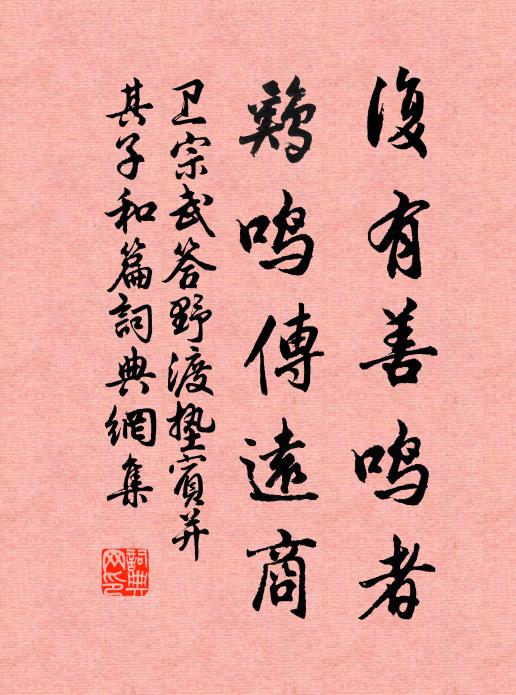 復有善鸣者
鷄鸣傳遠商
卫宗武答野渡塾賓并
其子和篇詞典網集
詞典网印